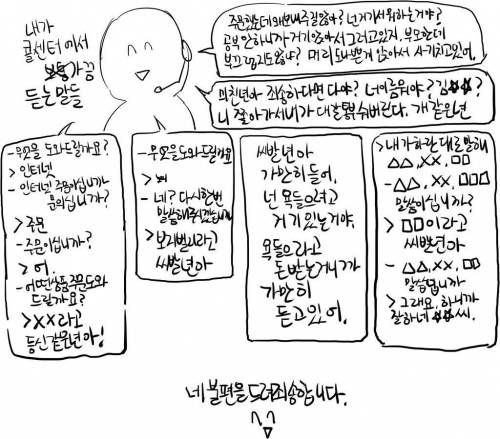 내가
콜센터에서
가끔
듣는 말들
주문했는데 왜 안보내주길않아? 넌 거기서 뭐하는거야?
공부 안하니까 거기 앉아서 그러고있지. 부모한테
부끄럽지도않냐? 머리 도나쁜게 앉아서 사기치고있어.
미친년아 죄송하다면 다야? 너 이름뭐야? 김☆☆?
니 찾아가서 내가 대갈뿱숴버린다. 개같은년
-무엇을 도와드릴까요?
> 인터넷
- 인터넷 주문이십니까
문의십니까?
> 주문
-주문이십니까?
> 어.
-어떤상품 주문도와
드릴까요?
>××라고
등신같은년아!
-무엇을도와드릴까요
- 네? 다시한번
말씀해주시겠습니까
>보지벌리라고
씨발년아
씨발년아
가만히들어.
넌 욕들으려고
거기있는거야.
욕들으라고
돈받는거니까
가만히
듣고있어.
>내가하란대로말해
△△, ××, □□
- △△, ××, □□□
말씀이십니까?
> □□이라고
씨발년아
- △△, ××, □□
말씀입니까
> 그래요, 하니까
잘하네 ☆☆씨.
네 불편을드려죄송합니다.